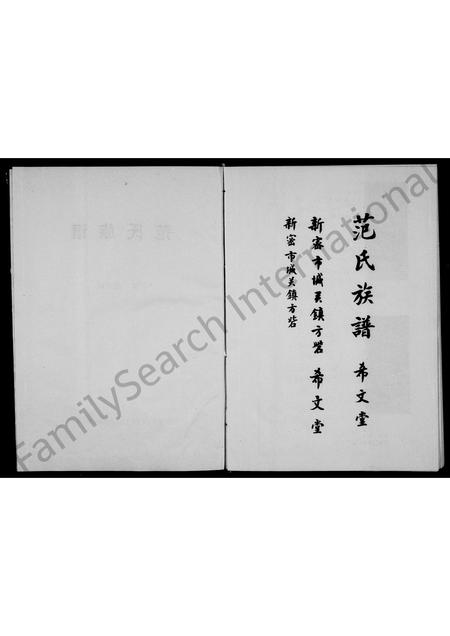 范氏族譜 希文堂
新密市城关鎮方砦 希文堂
新密市城关鎮方砦
范氏族谱
FamilySearch International